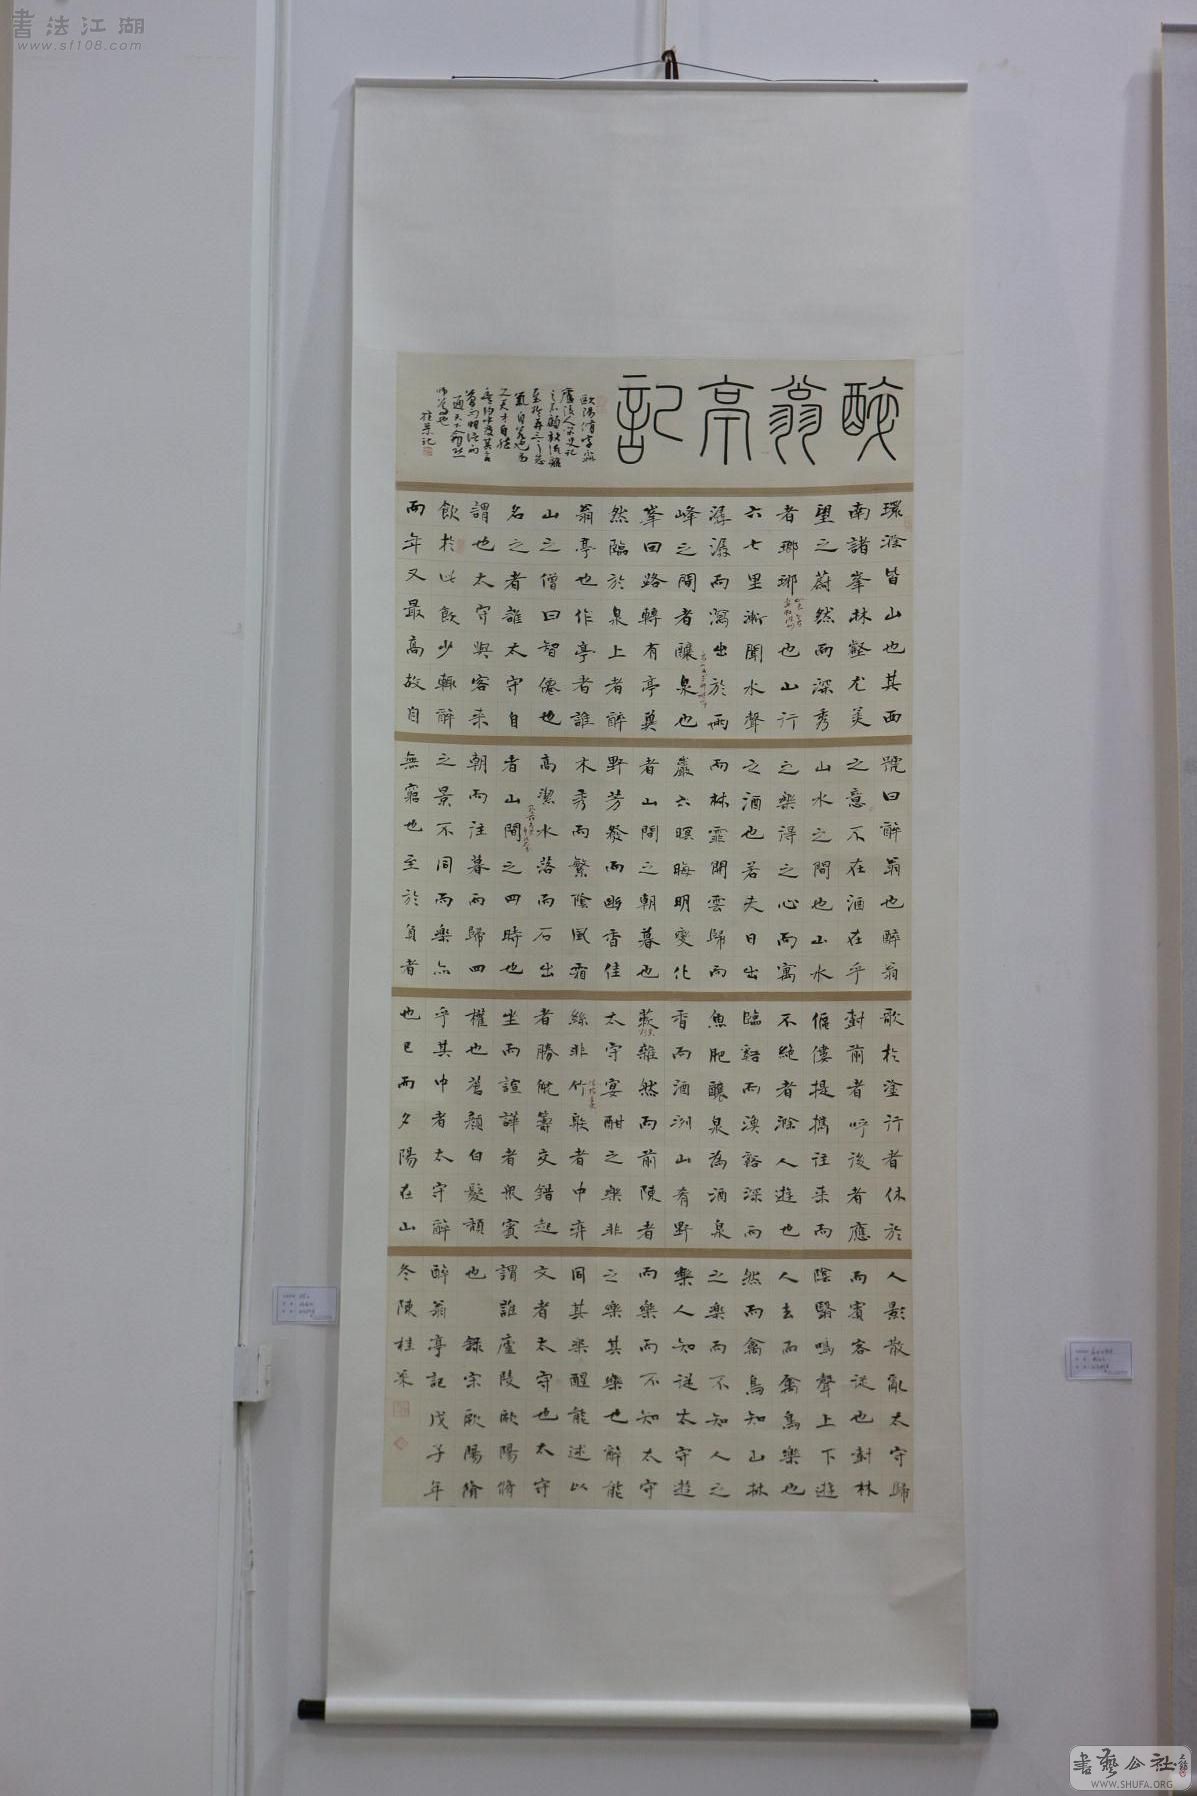 書法江湖
www.sf108.com
醉翁亭記
環滁皆山也其西
南諸峯林壑尤美
望之蔚然而深秀
者瑯琊也山行
六七里漸聞水聲
潺潺而瀉出於兩
峰之間者釀泉也
峯回路轉有亭翼
然臨於泉上者醉
翁亭也作亭者誰
山之僧曰智僊也
名之者誰太守自
謂也太守與客來
飲於此飲少輒醉
而年又最高故自
號曰醉翁也醉翁
之意不在酒在乎
山水之間也山水
之樂得之心而寓
之酒也若夫日出
而林霏開雲歸而
巖穴暝晦明變化
者山間之朝暮也
野芳發而幽香佳
木秀而繁陰風霜
高潔水落而石出
者山間之四時也
朝而往暮而歸四
之景不同而樂亦
無窮也至於負者
歌於塗行者休於
樹前者呼後者應
傴僂提攜往來而
不絶者滁人遊也
臨谿而漁谿深而
魚肥釀泉為酒泉
香而酒洌山肴野
蔌雜然而前陳者
太守宴酣之樂非
絲非竹射者中弈
者勝觥籌交錯起
坐而諠譁者衆賓
懽也蒼顏白髮頹
乎其中者太守醉
也已而夕陽在山
人影散亂太守歸
而賓客從也樹林
陰翳鳴聲上下遊
人去而禽鳥樂也
然而禽鳥知山林
之樂而不知人之
樂人知從太守遊
而樂而不知太守
之樂其樂也醉能
同其樂醒能述以
文者太守也太守
謂誰廬陵歐陽脩
也 錄宋歐陽脩
醉翁亭記戊子年
冬陳桂
書藝公社
WWW.SHUFA.ORG